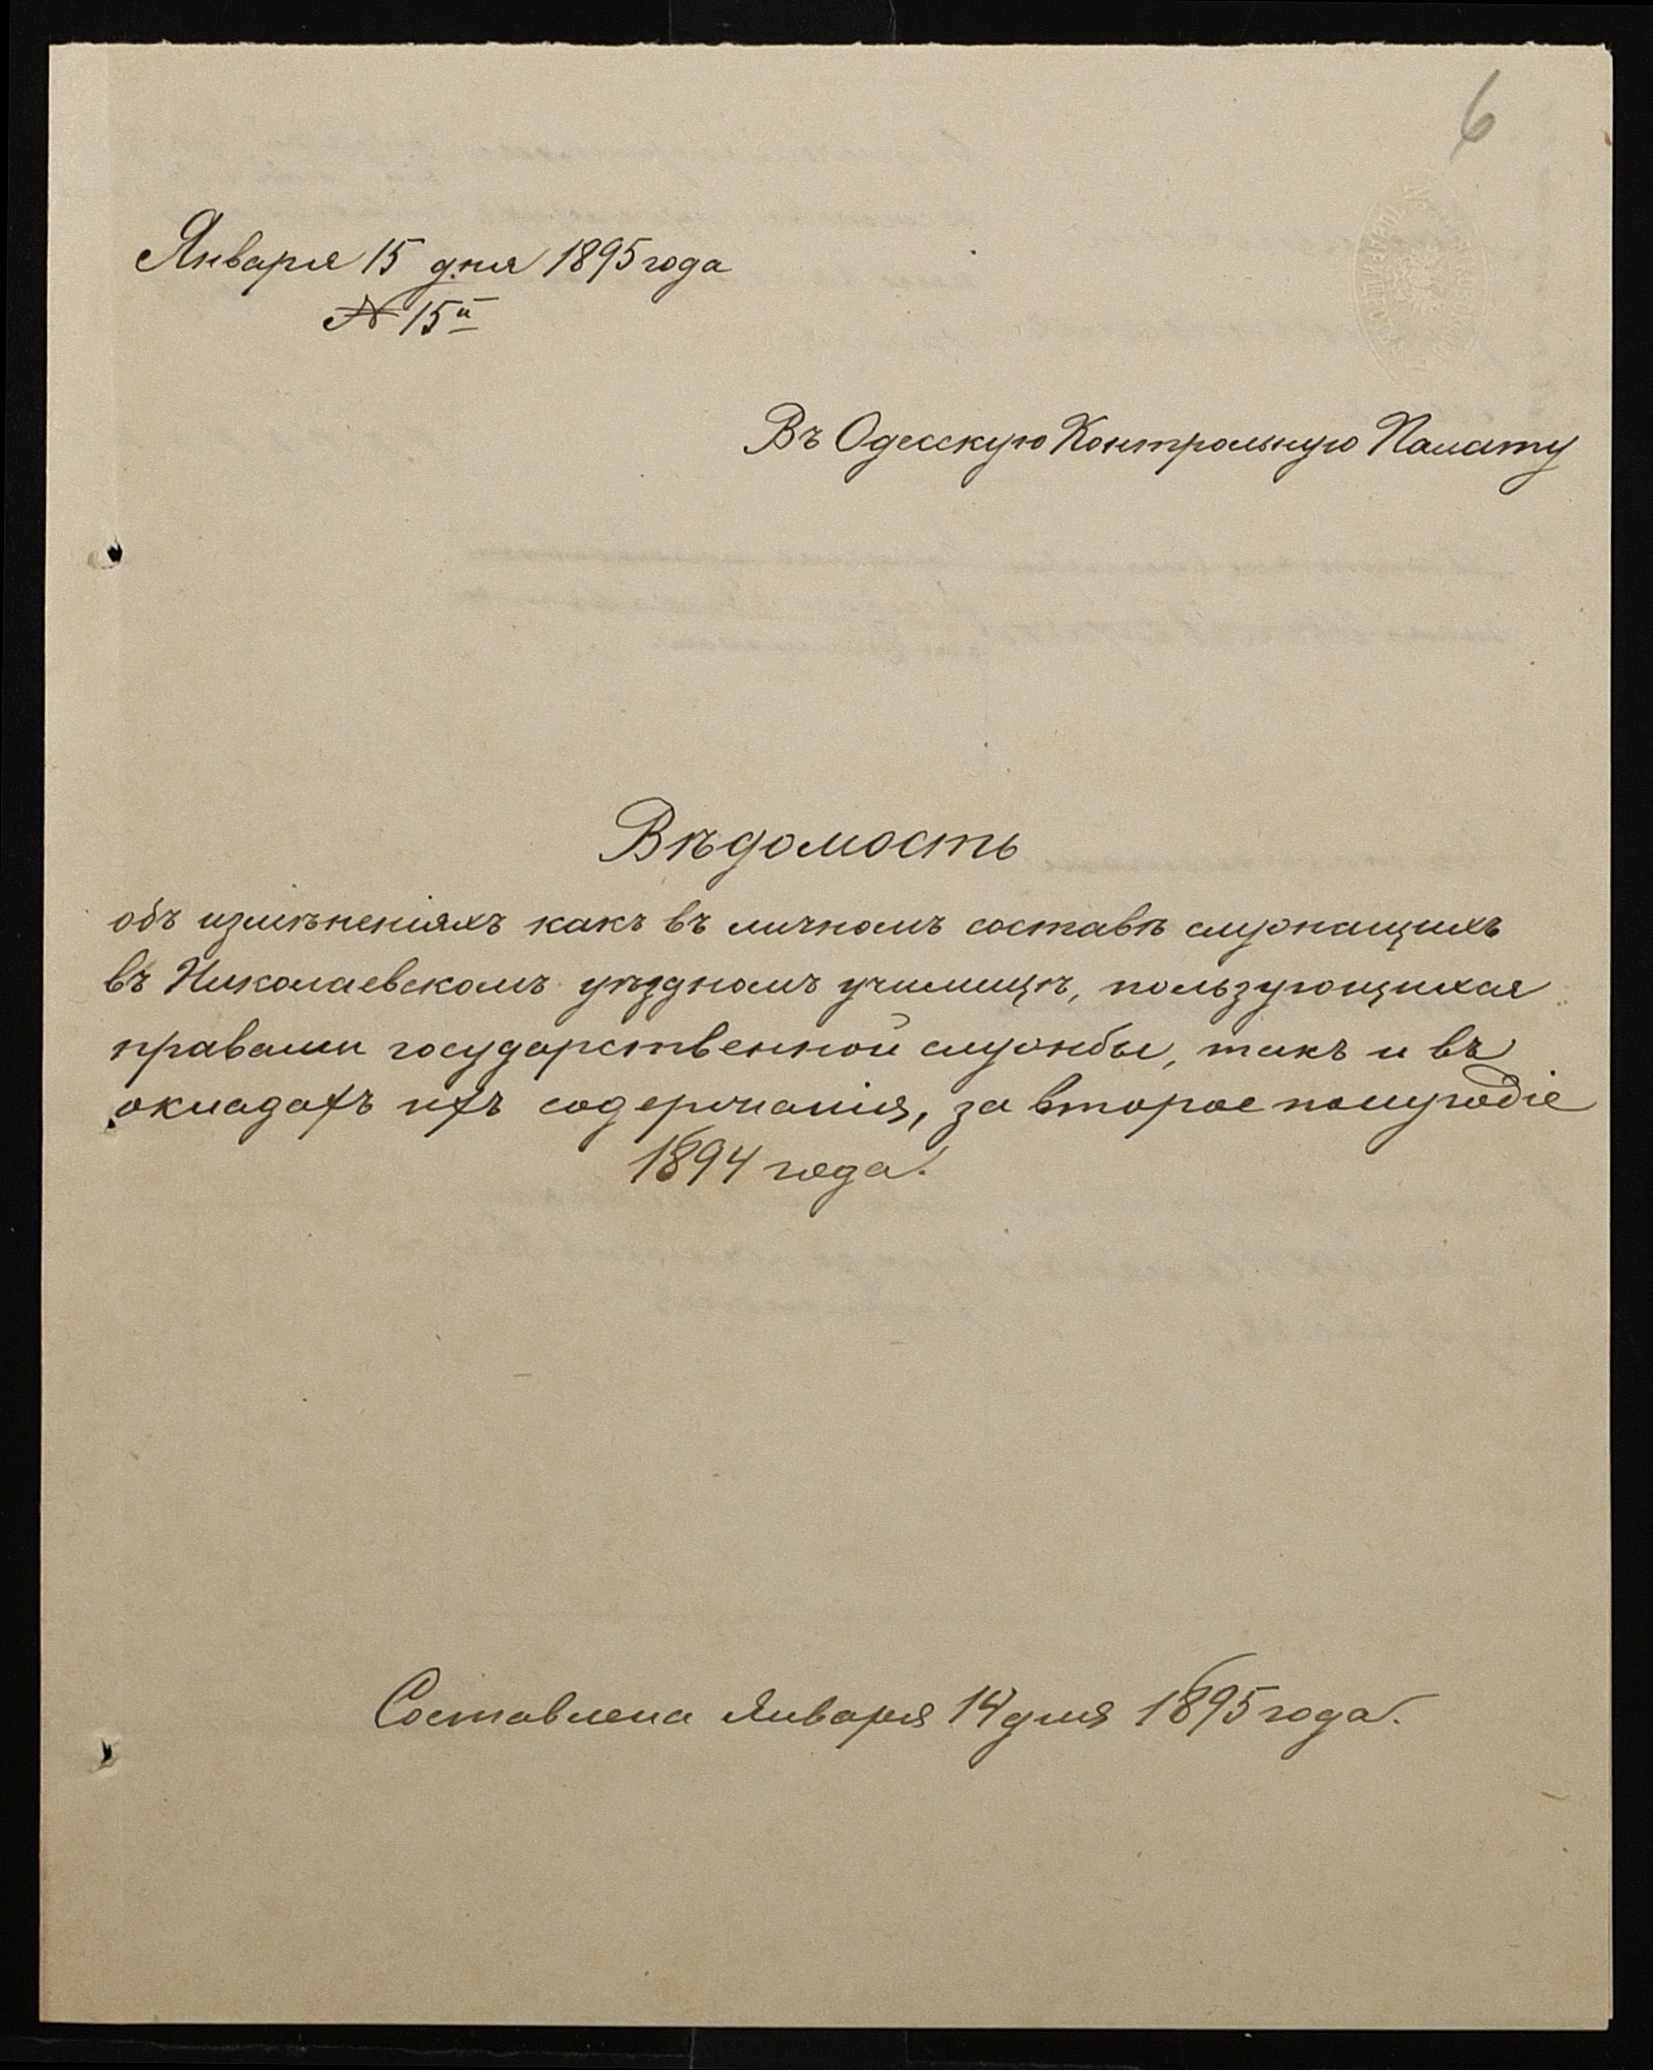 6
Января 15 дня 1895 года
№ 15й
Въ Одесскую Контрольную Палату
Вѣдомость
объ измѣненіяхъ какъ въ личномъ составѣ служащихъ
въ Николаевскомъ уѣздномъ училищѣ, пользующихся
правами государственной службы, такъ и въ
окладахъ ихъ содержанія, за второе полугодіе
1894 года.
Составлена Января 14 дня 1895 года.